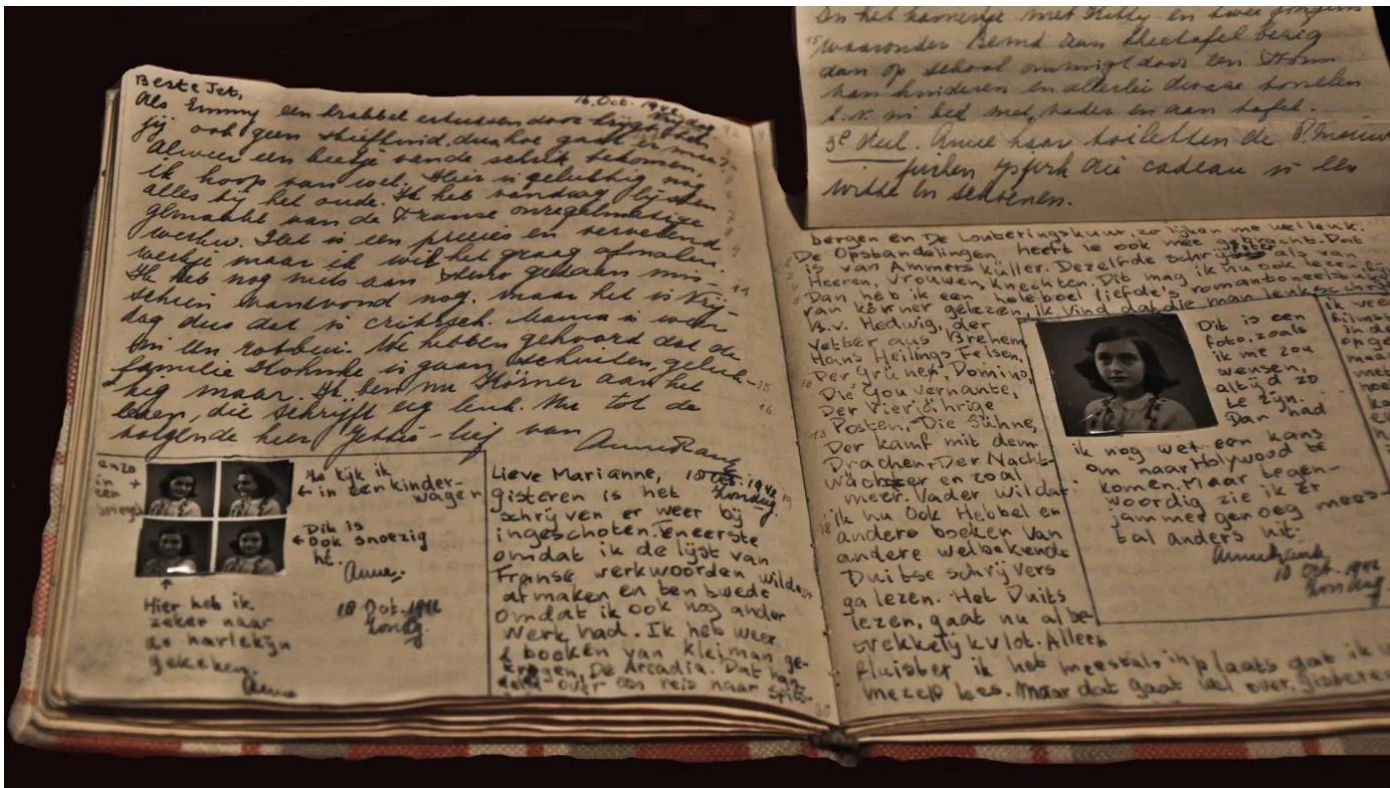 Beste Jet,
16. Oct. 1942
Vrijdag
Als Emmy een krabbel ertussen door krijgt ben
jij ook geen stiefkind, dus hoe gaat er mee?
Alweer een beetje van de schrik bekomen.
ik hoop van wel. Hier is gelukkig nog
alles bij het oude. Ik heb vandaag lijsten
gemaakt van de Franse onregelmatige
werkw. Dat is een precies en vervelend
werkje maar ik wil het graag afmaken.
Ik heb nog niets aan Steno gedaan mis-
schien vanavond nog. maar het is Vrij-
dag dus dat is critisch. Mama is weer
in een
We hebben gehoord dat de
familie is gaan schuilen, geluk-
kig maar. Ik ben nu Körner aan het
lezen, die schrijft erg leuk. Nu tot de
volgende keer Jettie-lief van
Anne Frank
anzo
in
een
Zo kijk ik
in een kinder-
wagen
Dit is
ook snoezig
hè.
Anne.
Hier heb ik
zeker naar
de harlekijn
gekeken.
Anne
18 Oct. 1942
Zondag
Lieve Marianne,
18 Oct. 1942
Zondag.
gisteren is het
schrijven er weer bij
ingeschoten. Teneerste
omdat ik de lijst van
Franse werkwoorden wilde
afmaken en ten twede
omdat ik ook nog ander
werk had. Ik heb weer
2 boeken van Kleiman ge-
kregen, De Arcadia. Dat han-
deld over een reis naar Spits-
In het kamertje met Kitty en twee jongens
waaronder Bernd aan theetafel bezig
dan op school omringt door een
kinderen en allerlei
b.v. in bed met vader en aan tafel.
3e deel. Anne haar toiletten de
die cadeau is een
witte en schoenen.
bergen en De Louteringskuur, zo lijken me wel leuk.
De Opstandelingen, heeft ie ook mee gebracht. Dat
is van Ammers Küller. Dezelfde schrijfster als van
Heeren, Vrouwen, Knechten. Dit mag ik nu ook lezen, fijn
Dan heb ik een hele boel liefde's romantoneelst
van körner gelezen, ik Vind dat die man leuk schrijft
B.v. Hedwig, der
Vetter aus Brehem,
Hans Heilings Felsen,
Der Grüner, Domino,
Die Gouvernante,
Der Vierjährige
Posten, Die Sühne,
Der Kamf mit dem
Drachen, Der Nacht-
wächter en zoal
meer. Vader wil dat
ik nu ook Hebbel en
andere boeken van
andere welbekende
Duitse schrijvers
ga lezen. Het Duits
lezen, gaat nu al be-
trekkelijk vlot. Alleen
fluister ik het meestal inplaats dat ik v
mezelf lees. Maar dat gaat wel over. gisteren
Dit is een
foto, zoals
ik me zou
wensen,
altijd zo
te zijn.
Dan had
ik nog wel een kans
om naar Holywood te
komen. Maar tegen-
woordig zie ik er
jammer genoeg mees-
tal anders uit.
Anne Frank
18 Oct. 1942
Zondag